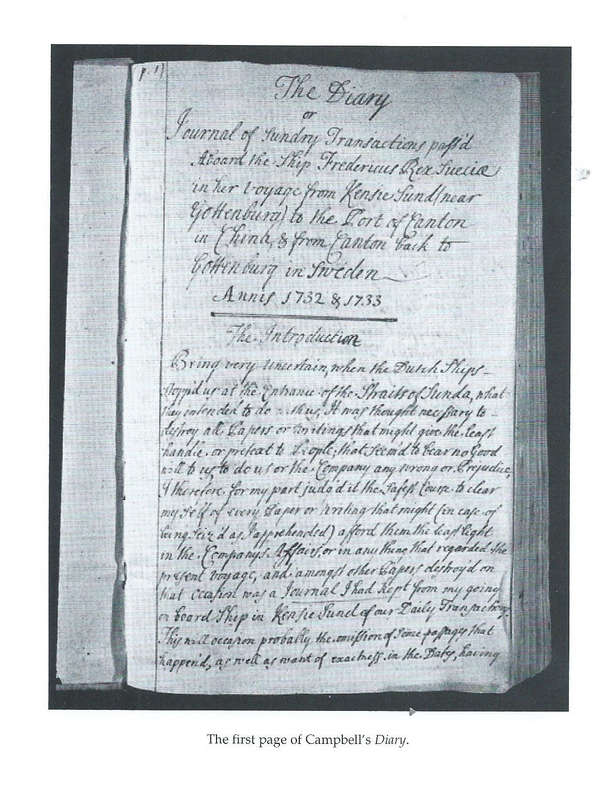 p. 1)
The Diary
or
Journal of Sundry Transactions pass'd
Aboard the Ship Fredericus Rex Sueciæ
in her Voyage from Kensie Sund (near
Gottenburg) to the Port of Canton
in China, & from Canton back to
Gottenburg in Sweden
Annis 1732 & 1733
The Introduction
Being very Uncertain, when the Dutch Ships
stoppid us at the Entrance of the Straits of Sunda, what
they intended to do with us, It was thought necessary to
destroy all Papers or writings that might give the least
handle or pretext to People, that seem'd to bear no Good
will to us to do us or the Company any wrong or Prejudice,
I therefore for my part judg'd it the safest Course to clear
my self of every Paper or writing that might (in case of
being seiz'd as I apprehended) afford them the least light
in the Companys Affairs, or in any thing that regarded the
present Voyage, and amongst other Papers destroyd on
that occasion was a Journal I had kept from my going
on board Ship in Kensie Sund of our Daily Transactions
This will occasion probably the omission of some passages that
happend, as well as want of exactness in the Dates, having
The first page of Campbell's Diary.